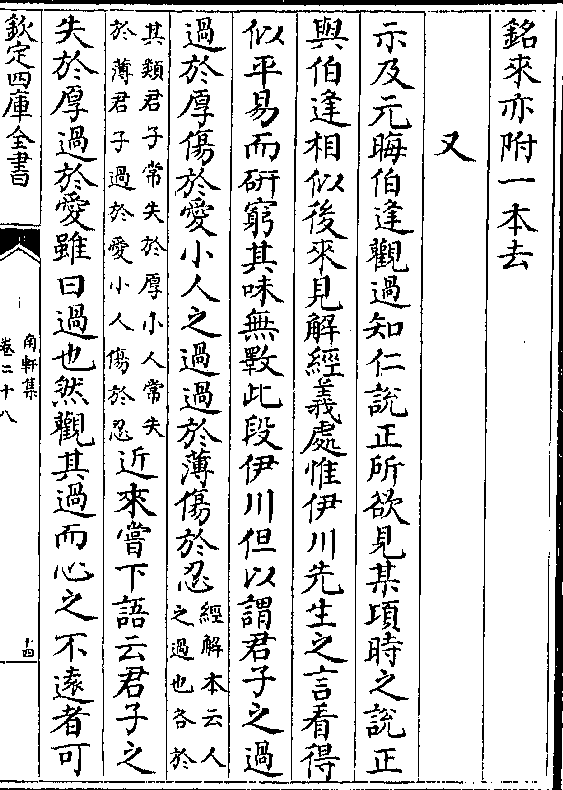 銘來亦附一本去
又
示及元晦伯逢觀過知仁說正所欲見某頃時之說正
與伯逢相似後來見解經義處惟伊川先生之言看得
似平易而研窮其味無斁此段伊川但以謂君子之過
過於厚傷於愛小人之過過於薄傷於忍經解本云人
之過也各於
其類君子常失於厚小人常失
於薄君子過於愛小人傷於忍近來嘗下語云君子之
失於厚過於愛雖曰過也然觀其過而心之不遠者可
欽定四庫全書
南軒集
卷二十八
十四